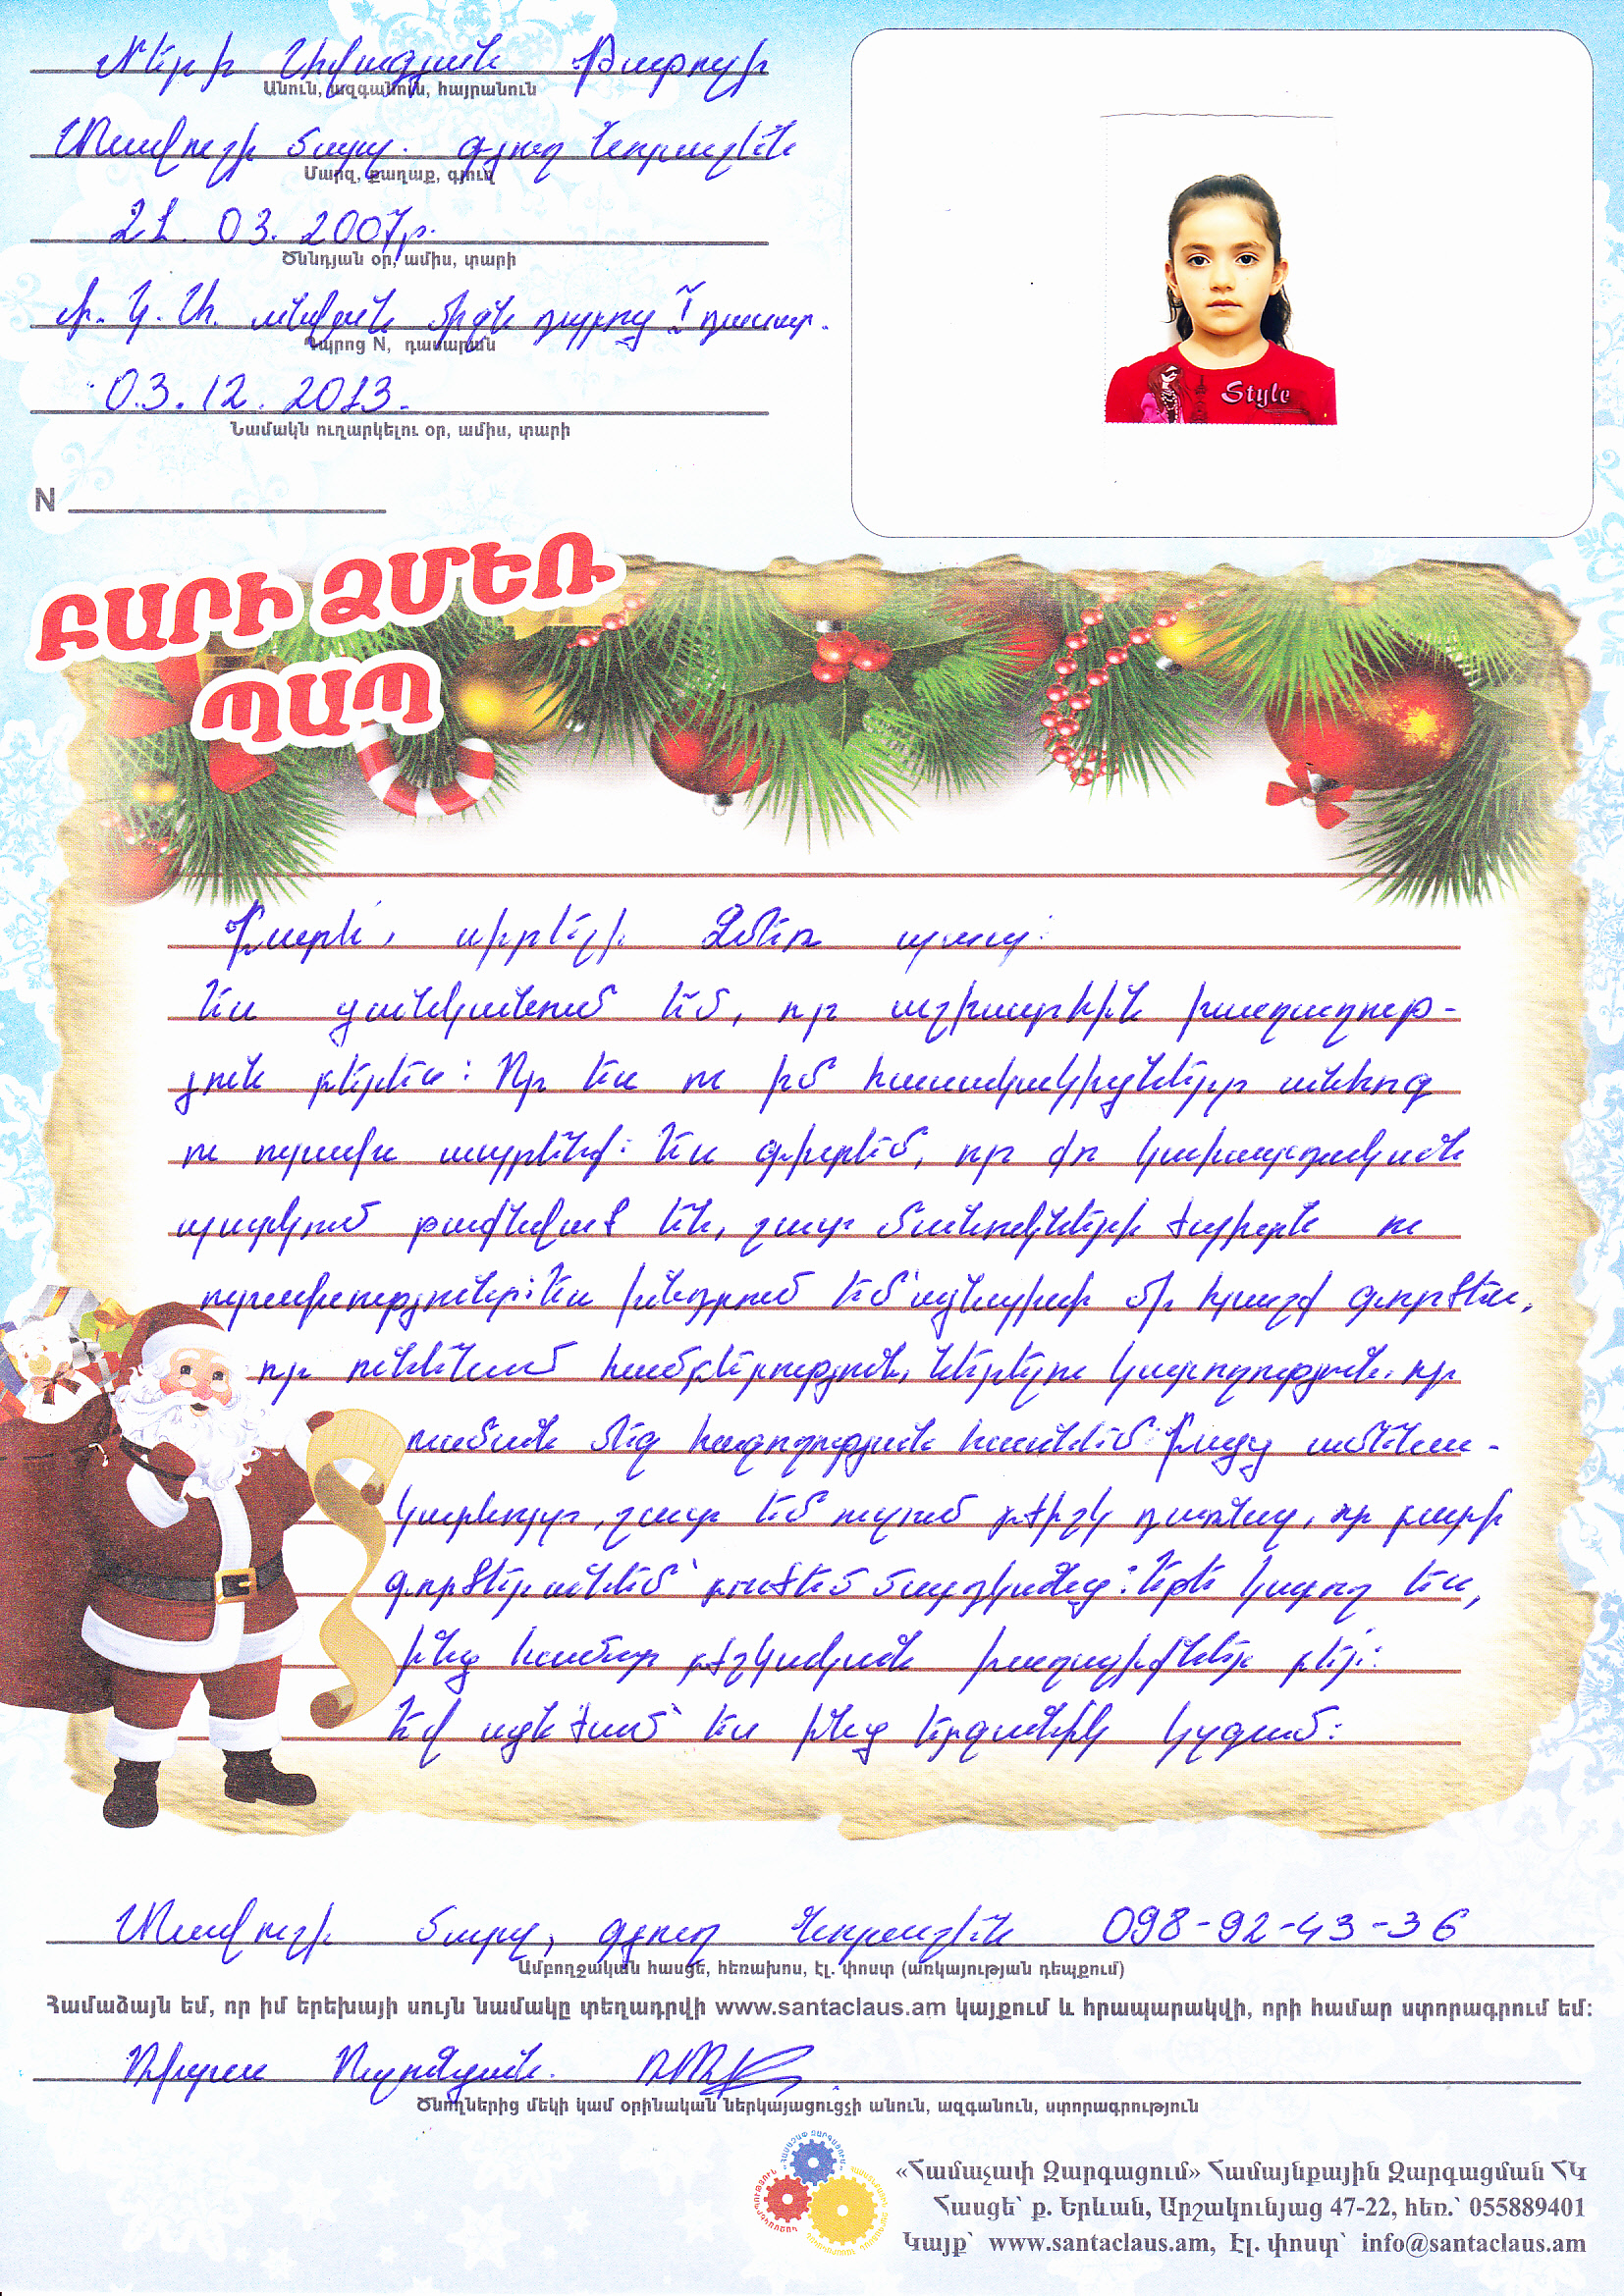 Մերի Նիկազյան Թաթուլի
Անուն, ազգանուն, հայրանուն
Տավուշի մարզ. գյուղ Նորաշեն
Մարզ, քաղաք, գյուղ
21. 03. 2007թ.
Ծննդյան օր, ամիս, տարի
անվան միջն դպրոց I դասար.
Դպրոց N, դասարան
03.12.2013.
Նամակն ուղարկելու օր, ամիս, տարի
N
ԲԱՐԻ ՁՄԵՌ
ՊԱՊ
Style
Բարի, սիրելի Ձմեռ պապ:
Ես ցանկանում եմ, որ աշխարհին խաղաղութ-
յուն բերես: Որ ես ու իմ հասակակիցները անհոգ
ու ուրախ ապրենք: Ես գիտեմ, որ քո կախարդական
պարկում թաքնված են, շատ մանուկների ծպիտն ու
ուրախությունը: Ես խնդրում եմ՝ այնպիսի մի հրաշք գործես,
որ ունենամ համբերություն, ներելու կարողություն. որ
ուսման մեջ հաջողության հասնեմ: Բայց ամենա-
կարևորը, շատ եմ ուզում բժիշկ դառնալ, որ բարի
գործեր անեմ՝ բուժեմ մարդկանց: Եթե կարող ես,
ինձ համար բժշկական խաղալիքներ բեր:
Եվ այն ժամ՝ ես ինձ երջանիկ կզգամ:
Տավուշի մարզ, գյուղ Նորաշեն 098-92-43-36
Ամբողջական հասցե, հեռախոս, էլ. փոստ (առկայության դեպքում)
Համաձայն եմ, որ իմ երեխայի սույն նամակը տեղադրվի www.santaclaus.am կայքում և հրապարակվի, որի համար ստորագրում եմ:
Ծնողներից մեկի կամ օրինական ներկայացուցչի անուն, ազգանուն, ստորագրություն
«Համաչափ Զարգացում» Համայնքային Զարգացման ՀԿ
Հասցե՝ ք. Երևան, Արշակունյաց 47-22, հեռ.՝ 055889401
Կայք՝ www.santaclaus.am, Էլ. փոստ՝ info@santaclaus.am